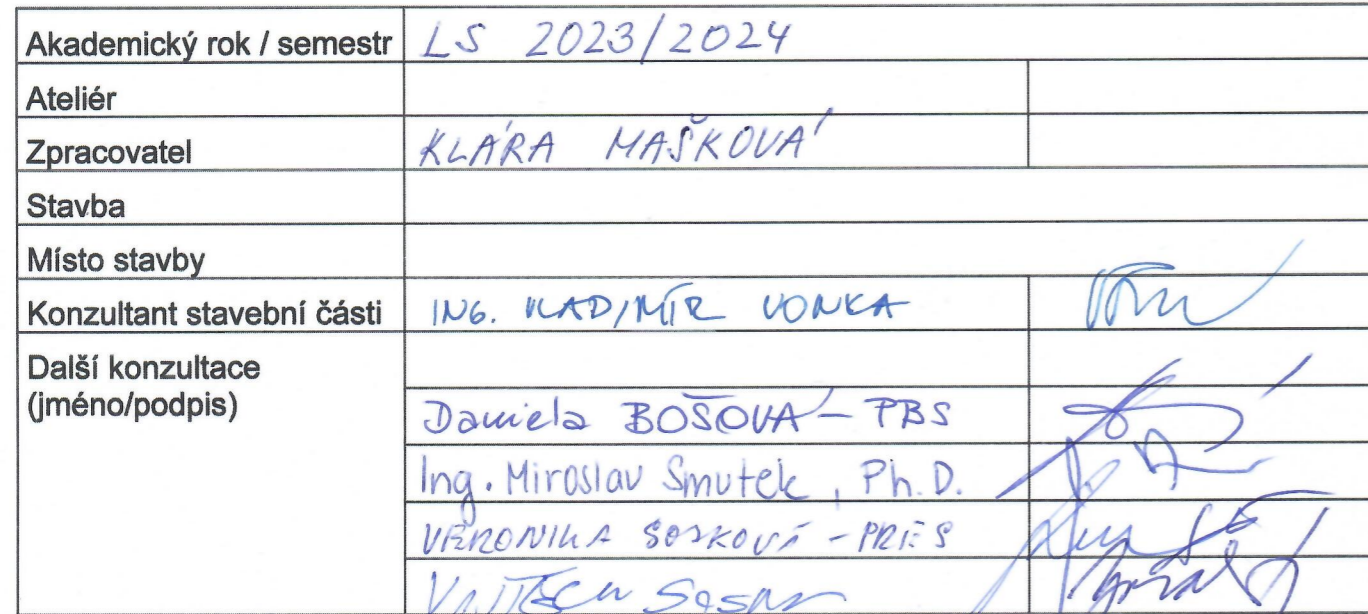 Akademický rok / semestr LS 2023/2024
Ateliér
Zpracovatel KLÁRA MAŠKOVÁ
Stavba
Místo stavby
Konzultant stavební části ING. VLADIMÍR VONKA
Další konzultace
(jméno/podpis)
Daniela BOŠOVÁ - PBS
Ing. Miroslav Smutek, Ph.D.
VERONIKA - PRES
VOJTĚCH